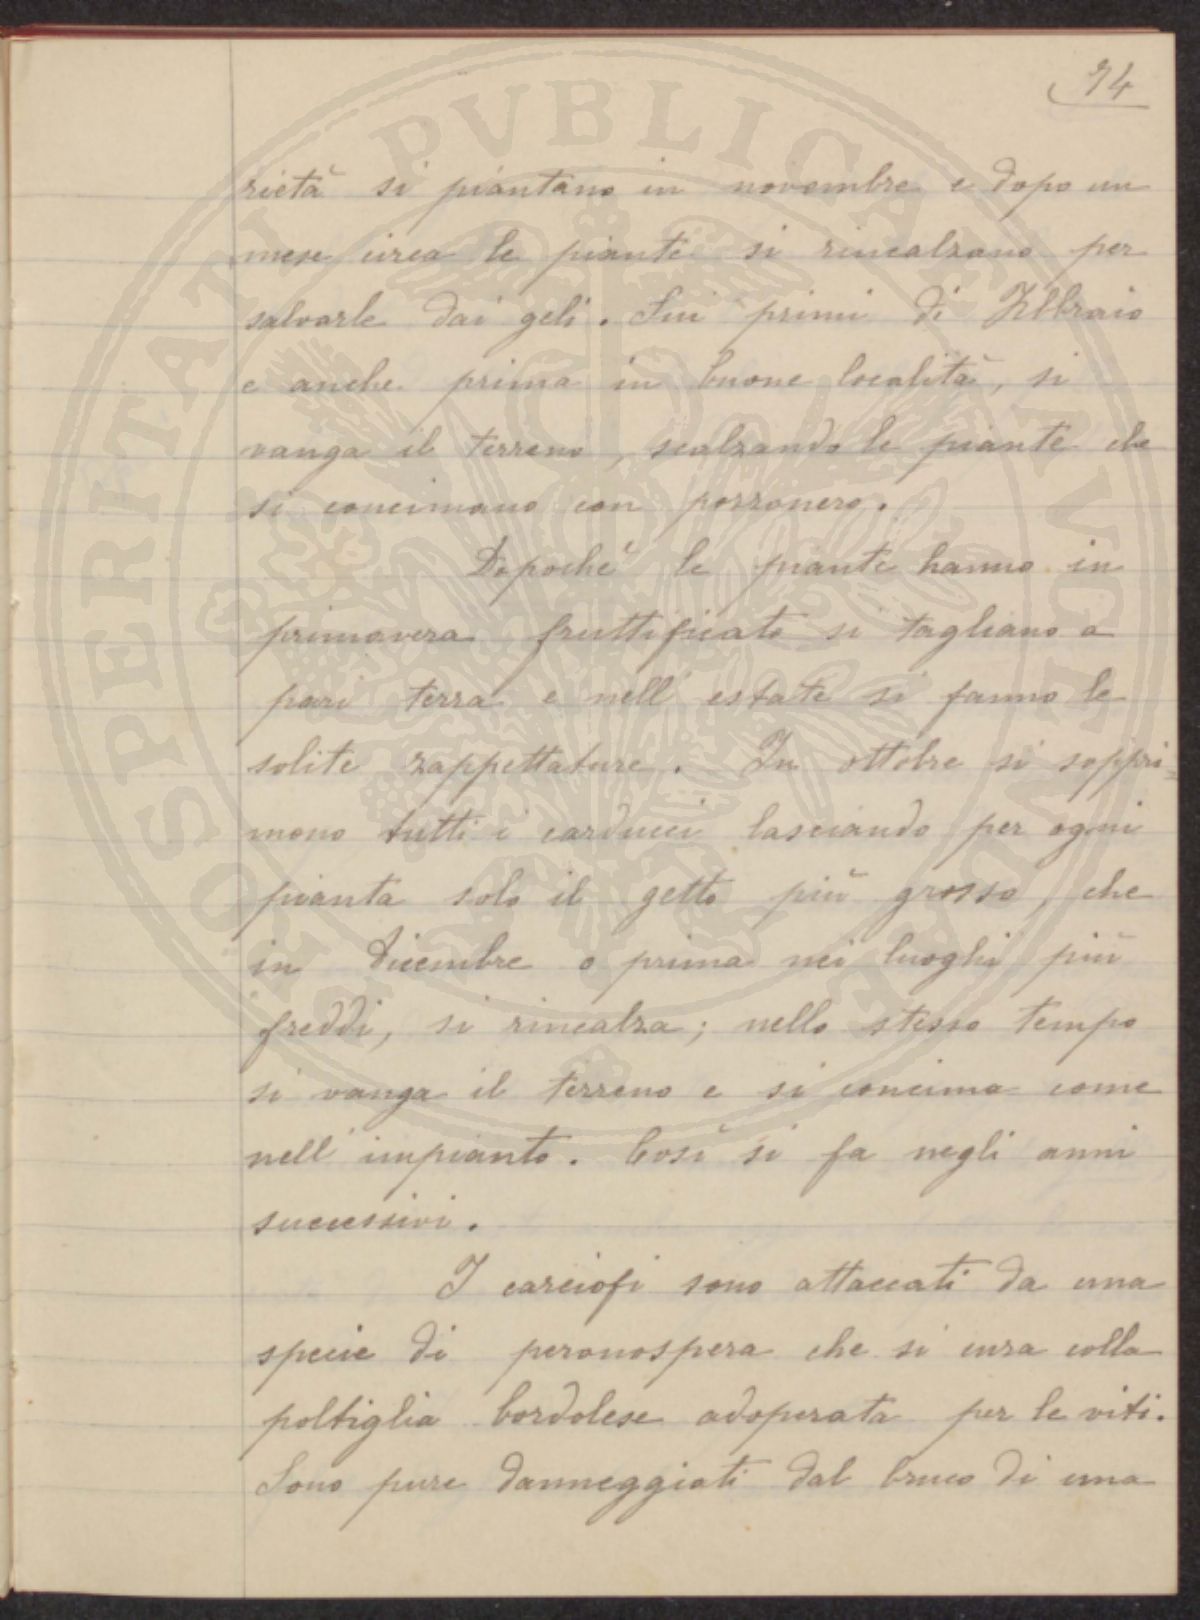 74
rietà si piantano in novembre e dopo un
mese circa le piante si rincalzano per
salvarle dai geli. Sui primi di Febbraio
e anche prima in buone località, si
vanga il terreno, scalzando le piante che
si concimano con pozzonero.
Dopochè le piante hanno in
primavera fruttificato si tagliano a
pari terra e nell'estate si fanno le
solite zappettature. In ottobre si soppri=
mono tutti i carducci lasciando per ogni
pianta solo il getto più grosso, che
in Dicembre o prima nei luoghi più
freddi, si rincalza; nello stesso tempo
si vanga il terreno e si concima come
nell'impianto. Così si fa negli anni
successivi.
I carciofi sono attaccati da una
specie di peronospera che si cura colla
poltiglia bordolese adoperata per le viti.
Sono pure danneggiati dal bruco di una